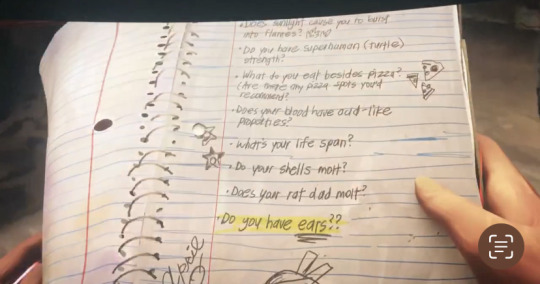 · Does sunlight cause you to burst
into flames?
· Do you have superhuman (turtle)
strength?
· What do you eat besides pizza?
(Are there any pizza spots you'd
recommend?
· Does your blood have acid-like
properties?
· What's your life span?
· Do your shells molt?
· Does your rat dad molt?
· Do you have ears??
April